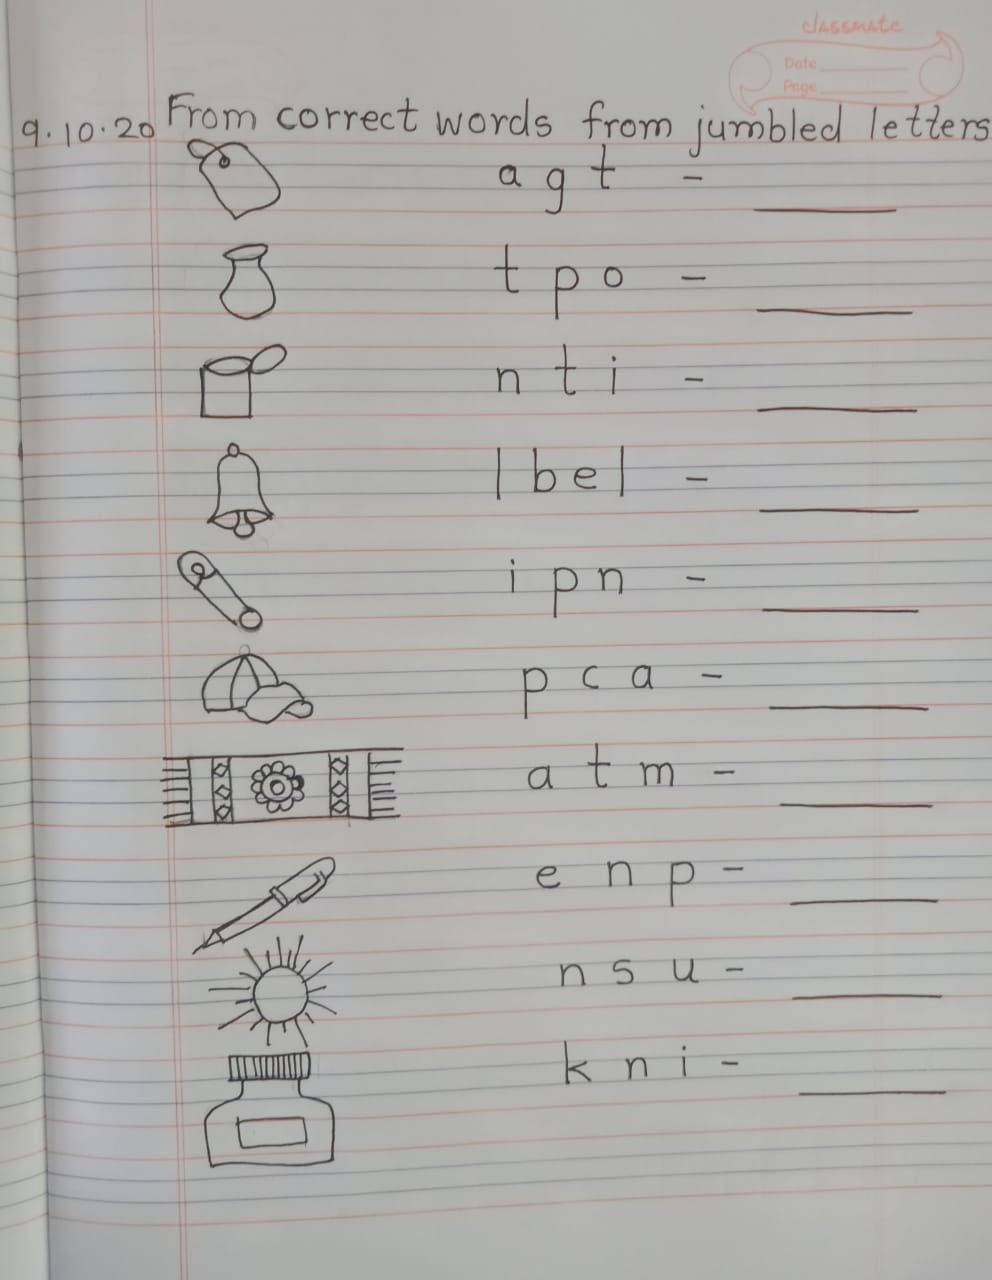 classmate
Date
Page
9.10.20 From correct words from jumbled letters
a g t -
t p o -
n t i -
l b e l -
i p n -
p c a -
a t m -
e n p -
n s u -
k n i -